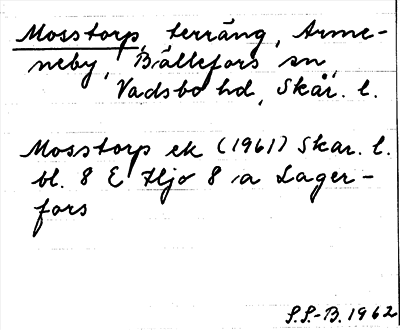 Mosstorp, terräng, Arme-
neby, Bällefors sn,
Vadsbo hd, Skar. l.
Mosstorp ek (1961) Skar. l.
bl. 8 E Hjo 8 a Lager-
fors
S.S.-B. 1962